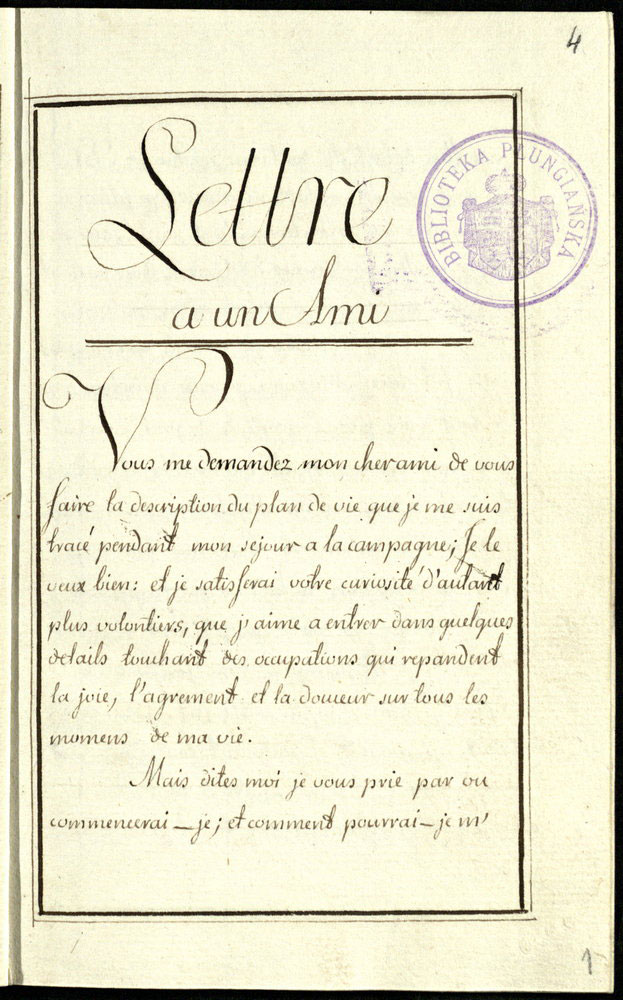 4
Lettre
a un Ami
BIBLIOTEKA PLUNGIAŃSKA
Vous me demandez mon cher ami de vous
faire la description du plan de vie que je me suis
tracé pendant mon sejour a la campagne; Je le
veux bien: et je satisferai votre curiosité d'autant
plus volontiers, que j'aime a entrer dans quelques
details touchant des occupations qui repandent
la joie, l'agrement et la douceur sur tous les
momens de ma vie.
Mais dites moi je vous prie par ou
commencerai_je; et comment pourrai_je m'
1